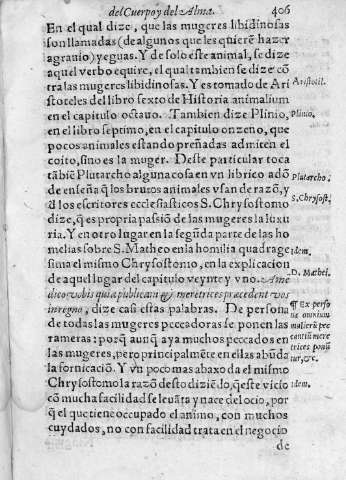 del Cuerpo y del Alma. 406
En el qual dize, que las mugeres libidinosas
son llamadas (de algunos que les q̃ieren hazer
agrauio) yeguas. Y de solo este animal, se dize
aquel verbo equire, el qual tambien se dize cõ
tra las mugeres libidinosas. Y es tomado de Ari
stoteles del libro sexto de Historia animalium
en el capitulo octauo. Tambien dize Plinio,
en el libro septimo, en el capitulo onzeno, que
pocos animales estando preñadas admiten el
coito, sino es la muger. Deste particular toca
tãbiẽ Plutarcho alguna cosa en vn librico adõ
de enseña q̃ los brutos animales vsan de razõ, y
d̃ los escritores ecclesiasticos S. Chrysostomo
dize, q̃ es propria passiõ de las mugeres la luxu
ria. Y en otro lugar en la segũda parte de las ho
melias sobre S. Matheo en la homilia quadrage
sima el mismo Chrysostomo, en la explicacion
de aquel lugar del capitulo veynte y vno. Amẽ
dico vobis quia publicani & meretrices præcedent vos
in regno, dize casi estas palabras. De persona
de todas las mugeres peccadoras se ponen las
rameras: porq̃ aunq̃ aya muchos peccados en
las mugeres, pero principalmẽte en ellas abũda
la fornicaciõ. Y vn poco mas abaxo da el mismo
Chrysostomo la razõ desto diziẽdo, q̃ este vicio
cõ mucha facilidad se leuãta y nace del ocio, por
q̃ el que tiene occupado el animo, con muchos
cuydados, no con facilidad trata en el negocio
de
Aristotil.
Plinio.
Plutarcho.
S. Chrysost.
idem.
D. Mathei.
¶ Ex perso
na omnium
mulierũ pec
cantiũ mere
trices ponũ
tur, &c.
idem.